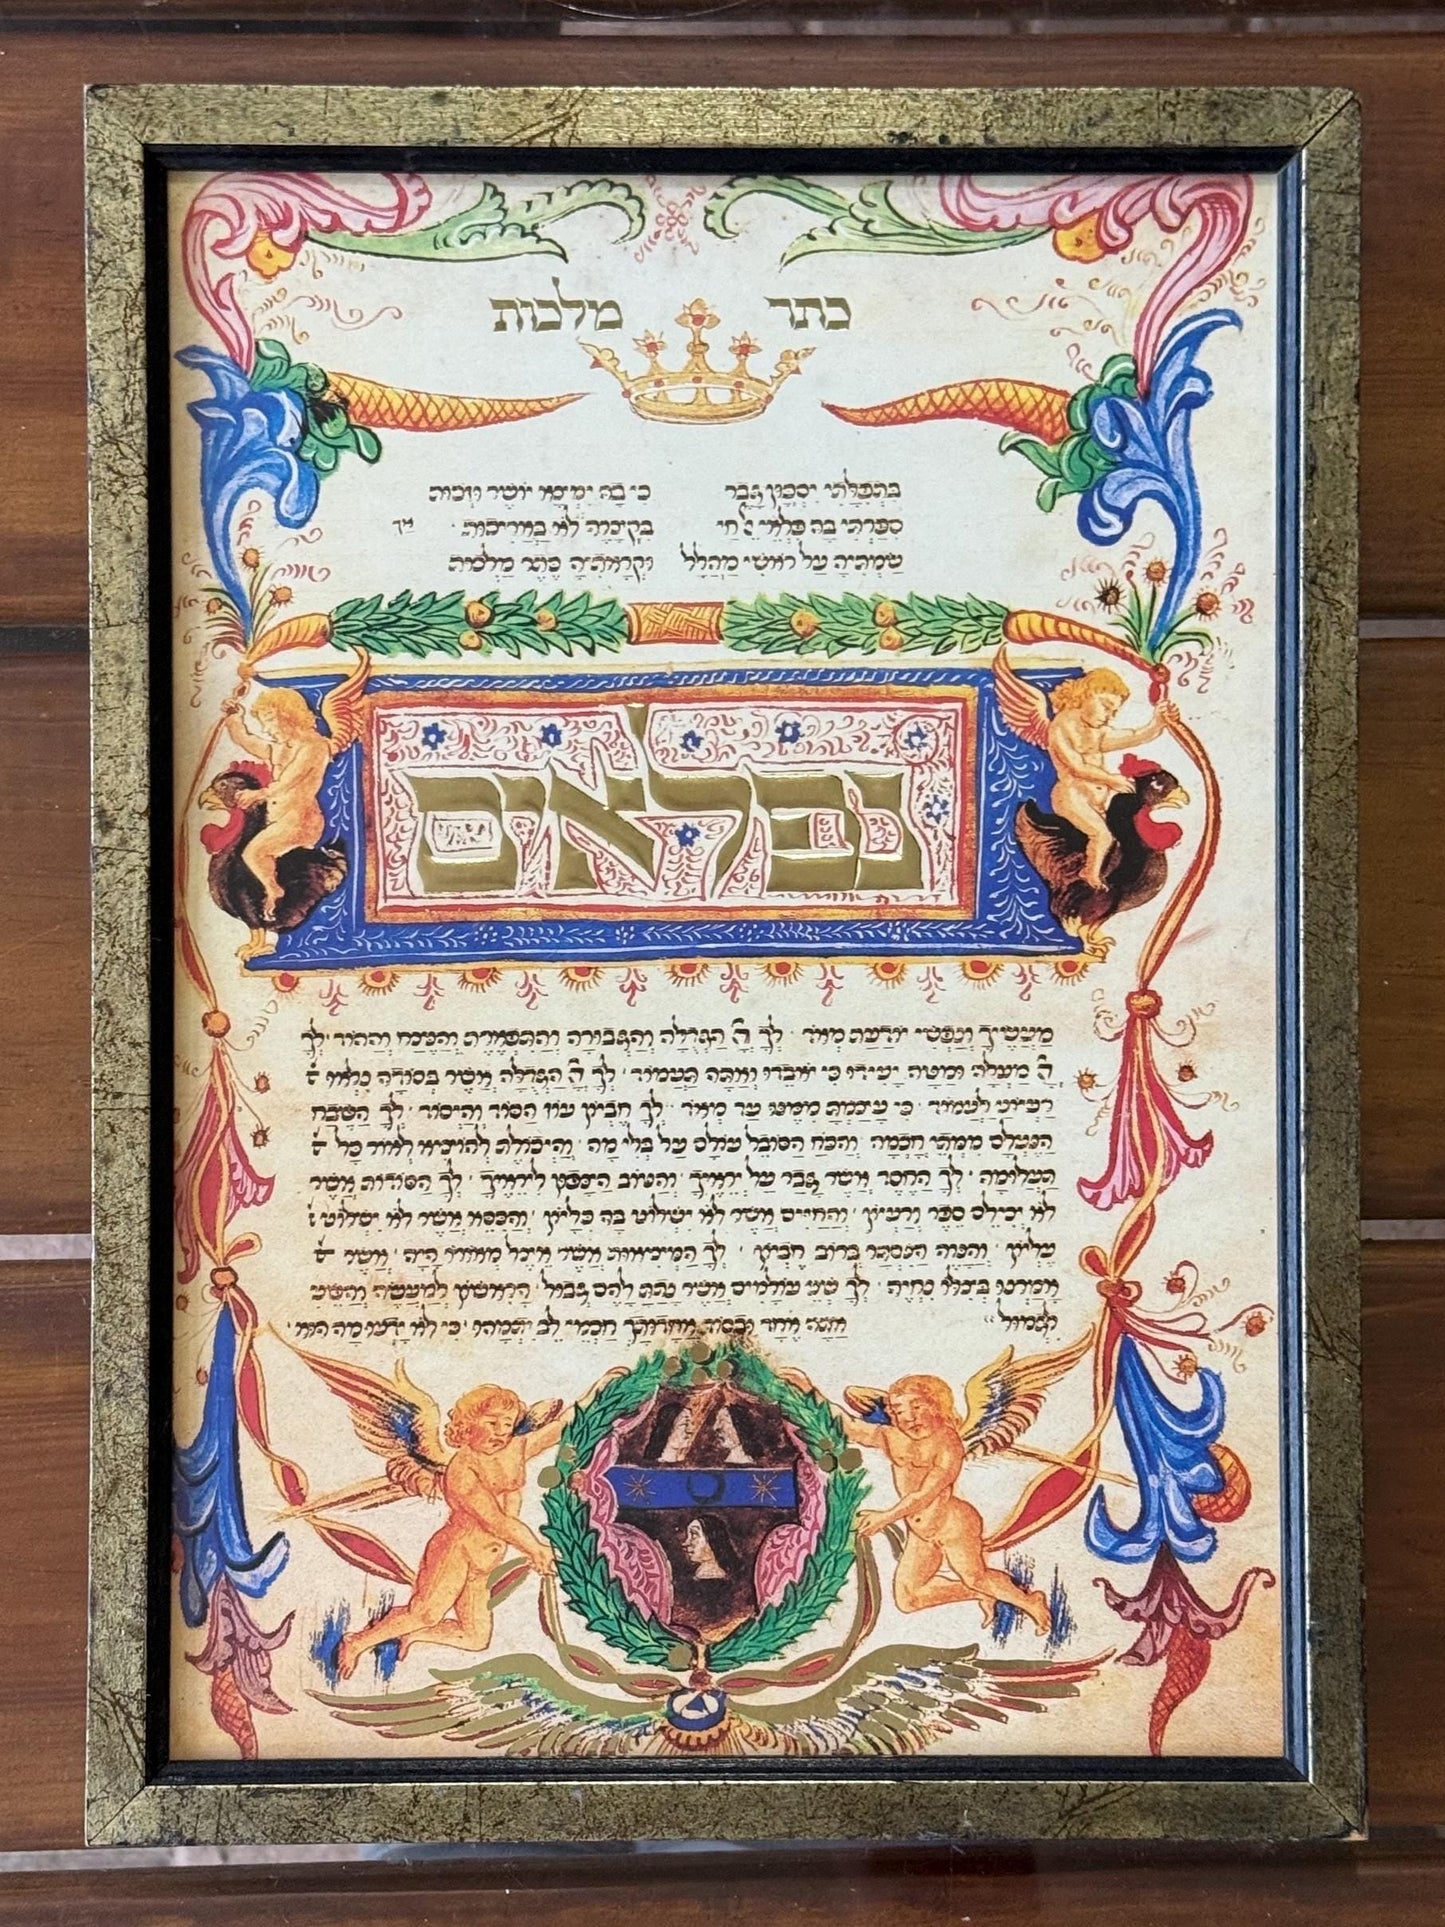 כתר מלכות
בִּתְפִלָּתִי יִסְכּוֹן גֶּבֶר כִּי בָהּ יִלְמַד יוֹשֶׁר וּזְכוּת
סִפַּרְתִּי בָהּ פִּלְאֵי אֵל חַי בִּקְצָרָה לֹא בַאֲרִיכוּת אך
שַׂמְתִּיהָ עַל רָאשֵׁי מַהֲלָל וּקְרָאתִיהָ כֶּתֶר מַלְכוּת
נפלאים
מעשיך ונפשי יודעת מאוד · לך ה הגדולה והגבורה והתפארת והנצח וההוד · לך
ה מעלה ומטה יעידו כי יאבדו ואתה תעמוד · לך ה הגדולה אשר בסודה נלאו
רעיוני לעמוד · כי עצמת ממנו עד מאוד · לך חביון עוז הסוד והיסוד · לך
הנעלם ממתי חכמה · והכח הסובל עולם על בלי מה · והיכולת להוציא לאור כל
תעלומה · לך החסד אשר גבר על יראיך · והטוב הצפון ליראיך · לך הסודות אשר
לא יכילם ורעיון · והחיים אשר לא ישלוט בה כליון · והכסא אשר לא ישלוט
עליון · והנוה הנסתר ברוב חביון · לך המציאות אשר מצל מאורו היה · אשר
אמרנו בצלו נחיה · לך שני עולמים אשר נתת להם גבול · הראשון למעשה והשני
לגמול אתה אחד ובסוד אחדותך חכמי לב יתמהו · כי לא ידעו מה הוא ·